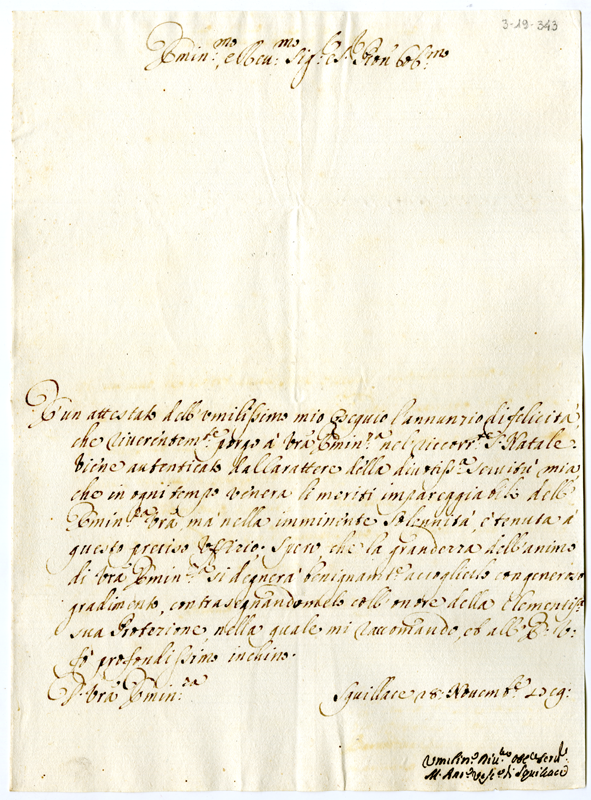 3-19-343
Emin.mo, e Rev.mo Sig.r e P.ron Col.mo
È un attestato dell'umilissimo mio ossequio l'annunzio di felicità,
che riverentem.te porgo à Vrã Emin.a nel ricorr.e S. Natale.
Viene autenticato dal carattere della divotiss.a servitù mia
che in ogni tempo venera li meriti impareggiabili dell'
Emin.a Vrã, mà nella imminente solennità, è tenuta à
questo preciso uffizio. Spero che la grandezza dell'animo
di Vrã Emin.a si degnerà benignam.te accoglierlo con generoso
gradimento, contrasegnandomelo coll'onore della clementiss.a
sua Protezione, nella quale mi raccomando, ed all' E. V.
fò profondissimo inchino.
D. Vrã Emin.za Squillace 18: Novemb.e
Umilis.o Div.mo Obb.o Serv.e
M. Vesc.o di Squillace